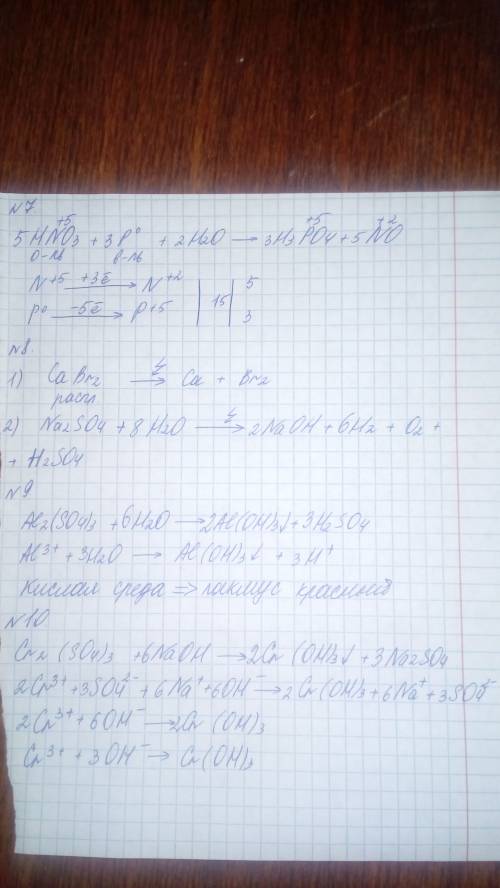 №7
5HN⁺⁵O₃ + 3P⁰ + 2H₂O → 3H₃P⁺⁵O₄ + 5N⁺²O
о-ль в-ль
N⁺⁵ +3ē → N⁺² | 15 | 5
P⁰ −5ē → P⁺⁵ | | 3
№8.
1) CaBr₂ → Ca + Br₂
распл
2) Na₂SO₄ + 8H₂O → 2NaOH + 6H₂ + O₂ +
+ H₂SO₄
№9
Al₂(SO₄)₃ + 6H₂O → 2Al(OH)₃↓ + 3H₂SO₄
Al³⁺ + 3H₂O → Al(OH)₃↓ + 3H⁺
Кислая среда => лакмус красный
№10
Cr₂(SO₄)₃ + 6NaOH → 2Cr(OH)₃↓ + 3Na₂SO₄
2Cr³⁺ + 3SO₄²⁻ + 6Na⁺ + 6OH⁻ → 2Cr(OH)₃ + 6Na⁺ + 3SO₄²⁻
2Cr³⁺ + 6OH⁻ → 2Cr(OH)₃
Cr³⁺ + 3OH⁻ → Cr(OH)₃